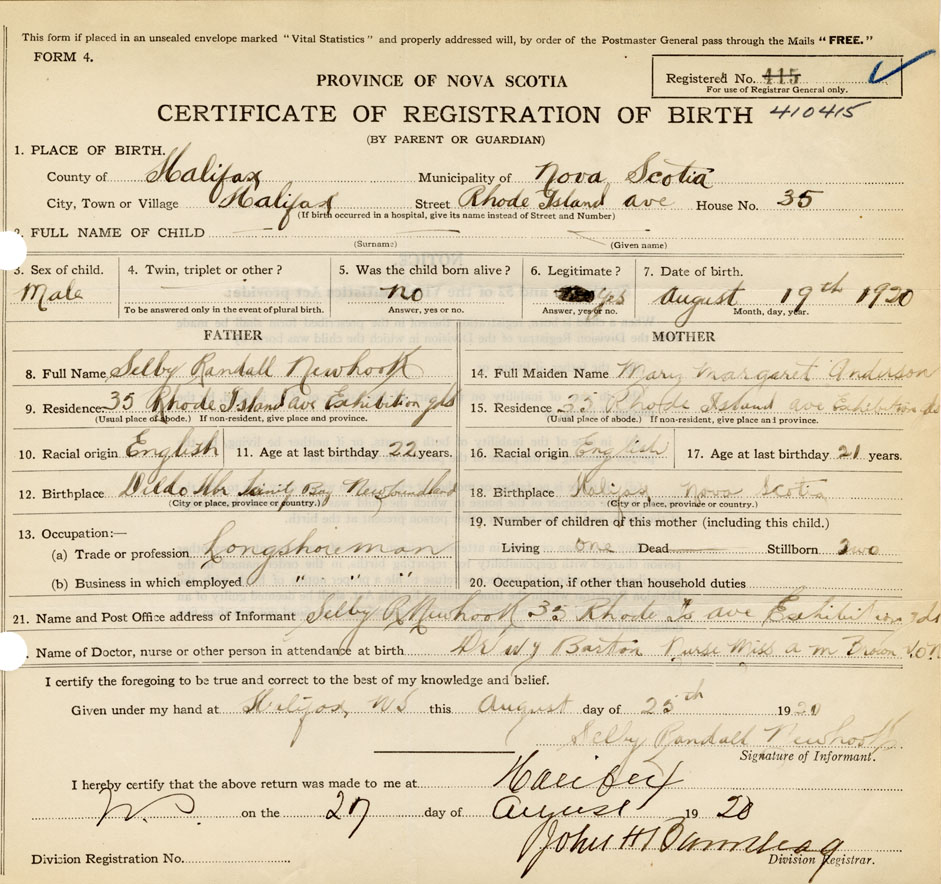 This form if placed in an unsealed envelope marked "Vital Statistics" and properly addressed will, by order of the Postmaster General pass through the Mails "FREE."
FORM 4.
Registered No. 415
For use of Registrar General only.
PROVINCE OF NOVA SCOTIA
CERTIFICATE OF REGISTRATION OF BIRTH 410415
(BY PARENT OR GUARDIAN)
1. PLACE OF BIRTH.
County of Halifax Municipality of Nova Scotia
City, Town or Village Halifax Street Rhode Island ave House No. 35
(If birth occurred in a hospital, give its name instead of Street and Number)
2. FULL NAME OF CHILD
(Surname) (Given name)
3. Sex of child. 4. Twin, triplet or other? 5. Was the child born alive? 6. Legitimate? 7. Date of birth.
Male No Yes August 19th 1920
To be answered only in the event of plural birth. Answer, yes or no. Answer, yes or no. Month, day, year.
FATHER MOTHER
8. Full Name Selby Randall Newhook 14. Full Maiden Name Mary Margaret Anderson
9. Residence 35 Rhode Island ave Exhibition gds 15. Residence 35 Rhode Island ave Exhibition gds
(Usual place of abode.) If non-resident, give place and province. (Usual place of abode.) If non-resident, give place and province.
10. Racial origin English 11. Age at last birthday 22 years. 16. Racial origin English 17. Age at last birthday 21 years.
12. Birthplace Dildo Hbr Trinity Bay Newfoundland 18. Birthplace Halifax, Nova Scotia
(City or place, province or country.) (City or place, province or country.)
13. Occupation:— 19. Number of children of this mother (including this child.)
(a) Trade or profession Longshoreman Living one Dead Stillborn Two
(b) Business in which employed " " " 20. Occupation, if other than household duties
21. Name and Post Office address of Informant Selby R Newhook 35 Rhode Is ave Exhibition gds
. Name of Doctor, nurse or other person in attendance at birth Dr W J Barton Nurse Miss a m Brown V.O.N
I certify the foregoing to be true and correct to the best of my knowledge and belief.
Given under my hand at Halifax, NS this August day of 25th 1920
Selby Randall Newhook
Signature of Informant.
I hereby certify that the above return was made to me at Halifax
on the 27 day of August 1920
John H
Division Registration No. Division Registrar.